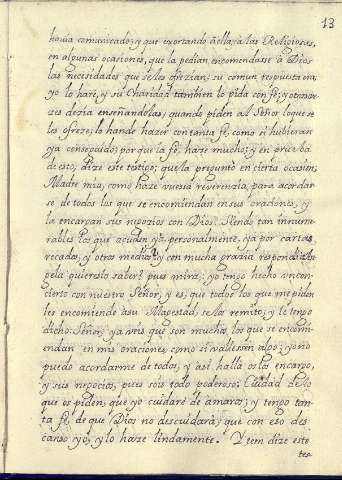 13
hauia comunicado; y que exortando à ella, à las Religiosas,
en algunas ocasiones, que la pedian encomendase à Dios
las necesidades que se les ofrezian; su comun respuesta era,
yo lo harè, y su Charidad tambien lo pida con fè; y otras ve
zes dezia enseñandolas; quando piden al Señor lo que se
les ofreze; lo han de hazer con tanta fè, como si hubieran
ya conseguido; porque la fè, haze mucho; y en prueba
de esto; dize este testigo; que la preguntò en cierta ocasion,
Madre mia, como haze vuesa reverenzia, para acordar
se de todos los que se encomiendan en sus oraciones, y
la encargan sus negozios con Dios. Siendo tan innume
rables los que acuden ya personalmente, ya por cartas,
recados, y otros medios; y con mucha grazia respondiò
pela quiereslo saber? pues mira; yo tengo hecho un con
cierto con nuestro Señor; y es, que todos los que me piden
les encomiende à su Magestad, se los remito; y le tengo
dicho: Señor, ya veis que son muchos los que se encomi
endan en mis oraciones, como si valiessen algo; yo no
puedo acordarme de todos, y assi hallà os los encargo,
y sus negocios, pues sois todo poderoso; Cuidad de lo
que os piden, que yo cuidarè de amaros; y tengo tan
ta fè, de que Dios no descuidarà; que con eso des
canso yo; y lo haze lindamente. Y tem dize este
tes